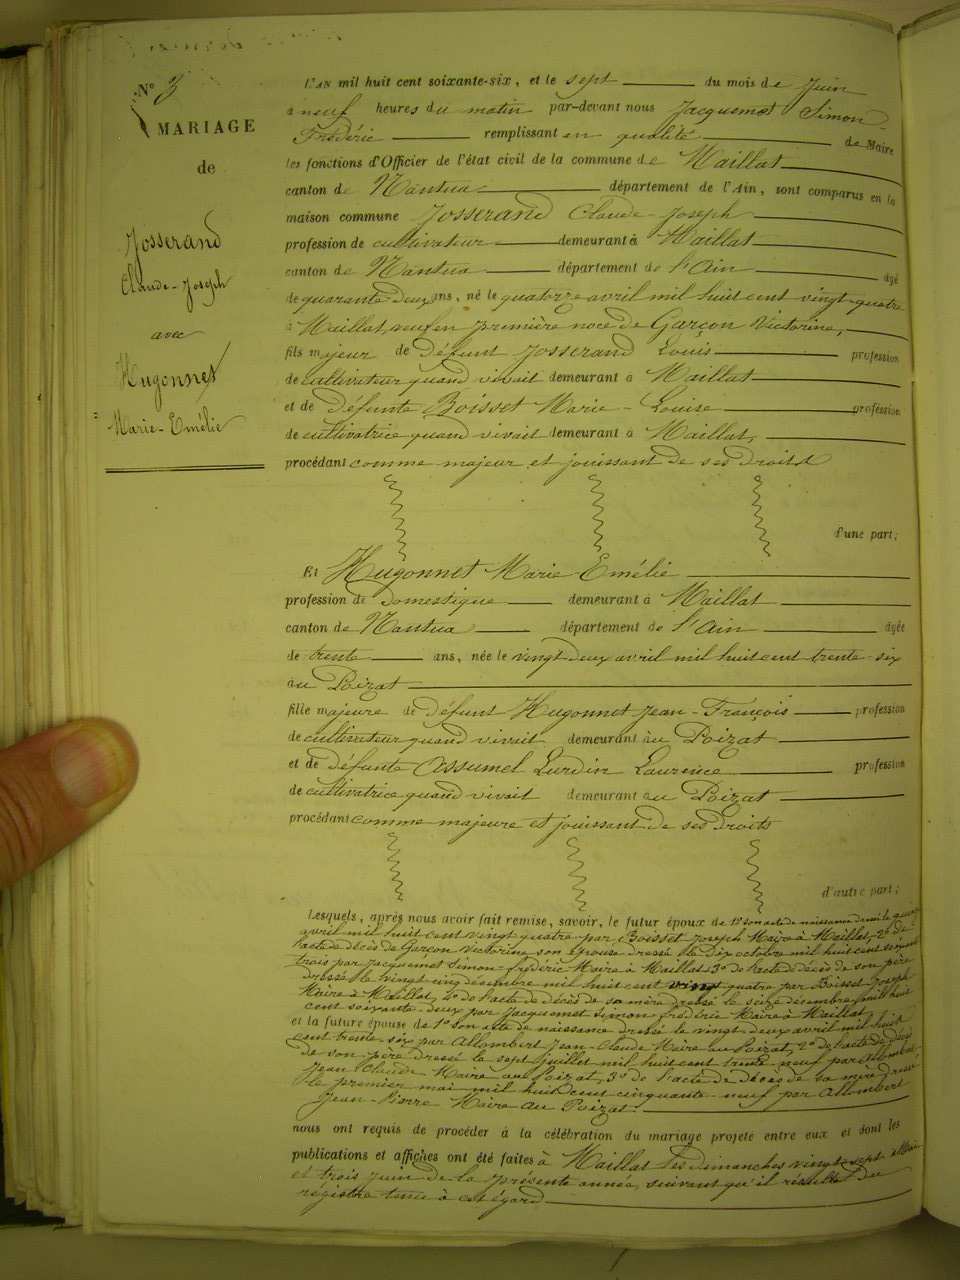 N° 3
MARIAGE
de
Josserand
Claude-Joseph
avec
Hugonnet
Marie-Emélie
L'AN mil huit cent soixante-six, et le sept du mois de Juin
à neuf heures du matin par-devant nous Jacquemet Simon-
Frédéric remplissant en qualité de Maire
les fonctions d'Officier de l'état civil de la commune de Maillat
canton de Nantua département de l'Ain, sont comparus en la
maison commune Josserand Claude-Joseph
profession de cultivateur demeurant à Maillat
canton de Nantua département de l'Ain âgé
de quarante-deux ans, né le quatorze avril mil huit cent vingt-quatre
à Maillat, veuf en première noce de Garçon Victorine,
fils majeur de défunt Josserand Louis profession
de cultivateur quand vivait demeurant à Maillat
et de défunte Boisset Marie-Louise profession
de cultivatrice quand vivait demeurant à Maillat,
procédant comme majeur et jouissant de ses droits
d'une part;
Et Hugonnet Marie Emélie
profession de domestique demeurant à Maillat
canton de Nantua département de l'Ain âgée
de trente ans, née le vingt deux avril mil huit cent trente-six
au Poizat
fille majeure de défunt Hugonnet Jean-François profession
de cultivateur quand vivait demeurant au Poizat
et de défunte Assumel Lurdin Laurence profession
de cultivatrice quand vivait demeurant au Poizat
procédant comme majeure et jouissant de ses droits
d'autre part;
Lesquels, après nous avoir fait remise, savoir, le futur époux de 1° son acte de naissance dressé le quinze
avril mil huit cent vingt quatre par Boisset Joseph Maire à Maillat, 2° de
l'acte de décès de Garçon Victorine son épouse dressé le dix octobre mil huit cent soixante
trois par Jacquemet Simon-frédéric Maire à Maillat, 3° de l'acte de décès de son père
dressé le vingt cinq décembre mil huit cent quatre par Boisset Joseph
Maire à Maillat, 4° de l'acte de décès de sa mère dressé le seize décembre mil huit
cent soixante-deux par Jacquemet Simon frédéric Maire à Maillat
et la future épouse de 1° son acte de naissance dressé le vingt deux avril mil huit
cent trente six par Allombert Jean-Claude Maire au Poizat, 2° de l'acte de décès
de son père dressé le sept juillet mil huit cent trente neuf par Allombert
Jean Claude Maire au Poizat, 3° de l'acte de décès de sa mère dressé
le premier mai mil huit cent cinquante-neuf par Allombert
Jean-Pierre Maire au Poizat
nous ont requis de procéder à la célébration du mariage projeté entre eux et dont les
publications et affiches ont été faites à Maillat les dimanches vingt-sept Mai
et trois Juin de la présente année, suivant qu'il résulte du
registre tenu à cet égard